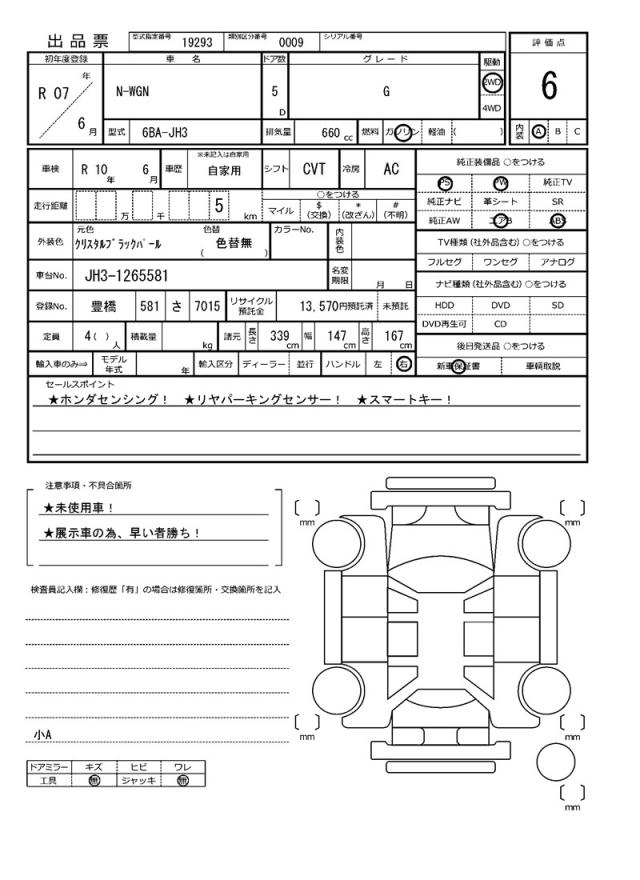 出品票
型式指定番号 19293 類別区分番号 0009 シリアル番号
初年度登録 車名 ドア数 グレード 駆動 評価点
R 07 年 6 月
N-WGN 5 D G 2WD 4WD
6
型式 6BA-JH3 排気量 660 cc 燃料 ガソリン 軽油 ( )
内装 A B C
車検 R 10 年 6 月 車歴 ※未記入は自家用 自家用 シフト CVT 冷房 AC
純正装備品 ○をつける
PS PW 純正TV
純正ナビ 革シート SR
純正AW エアB ABS
走行距離 万 千 5 km
○をつける
マイル $ (交換) * (改ざん) # (不明)
外装色 元色 クリスタルブラックパール 色替 ( 色替無 ) カラーNo. 内装色
TV種類(社外品含む) ○をつける
フルセグ ワンセグ アナログ
車台No. JH3-1265581 名変期限 月 日
ナビ種類(社外品含む) ○をつける
HDD DVD SD
DVD再生可 CD
登録No. 豊橋 581 さ 7015 リサイクル預託金 13,570円預託済 未預託
定員 4 ( ) 人 積載量 kg 諸元 長さ 339 cm 幅 147 cm 高さ 167 cm
後日発送品 ○をつける
新車保証書 車輌取説
輸入車のみ⇒ モデル年式 年 輸入区分 ディーラー 並行 ハンドル 左 右
セールスポイント
★ホンダセンシング! ★リヤパーキングセンサー! ★スマートキー!
注意事項・不具合箇所
★未使用車!
★展示車の為、早い者勝ち!
検査員記入欄:修復歴「有」の場合は修復箇所・交換箇所を記入
小A
ドアミラー キズ ヒビ ワレ
工具 無 ジャッキ 無
mm
mm
mm
mm
mm